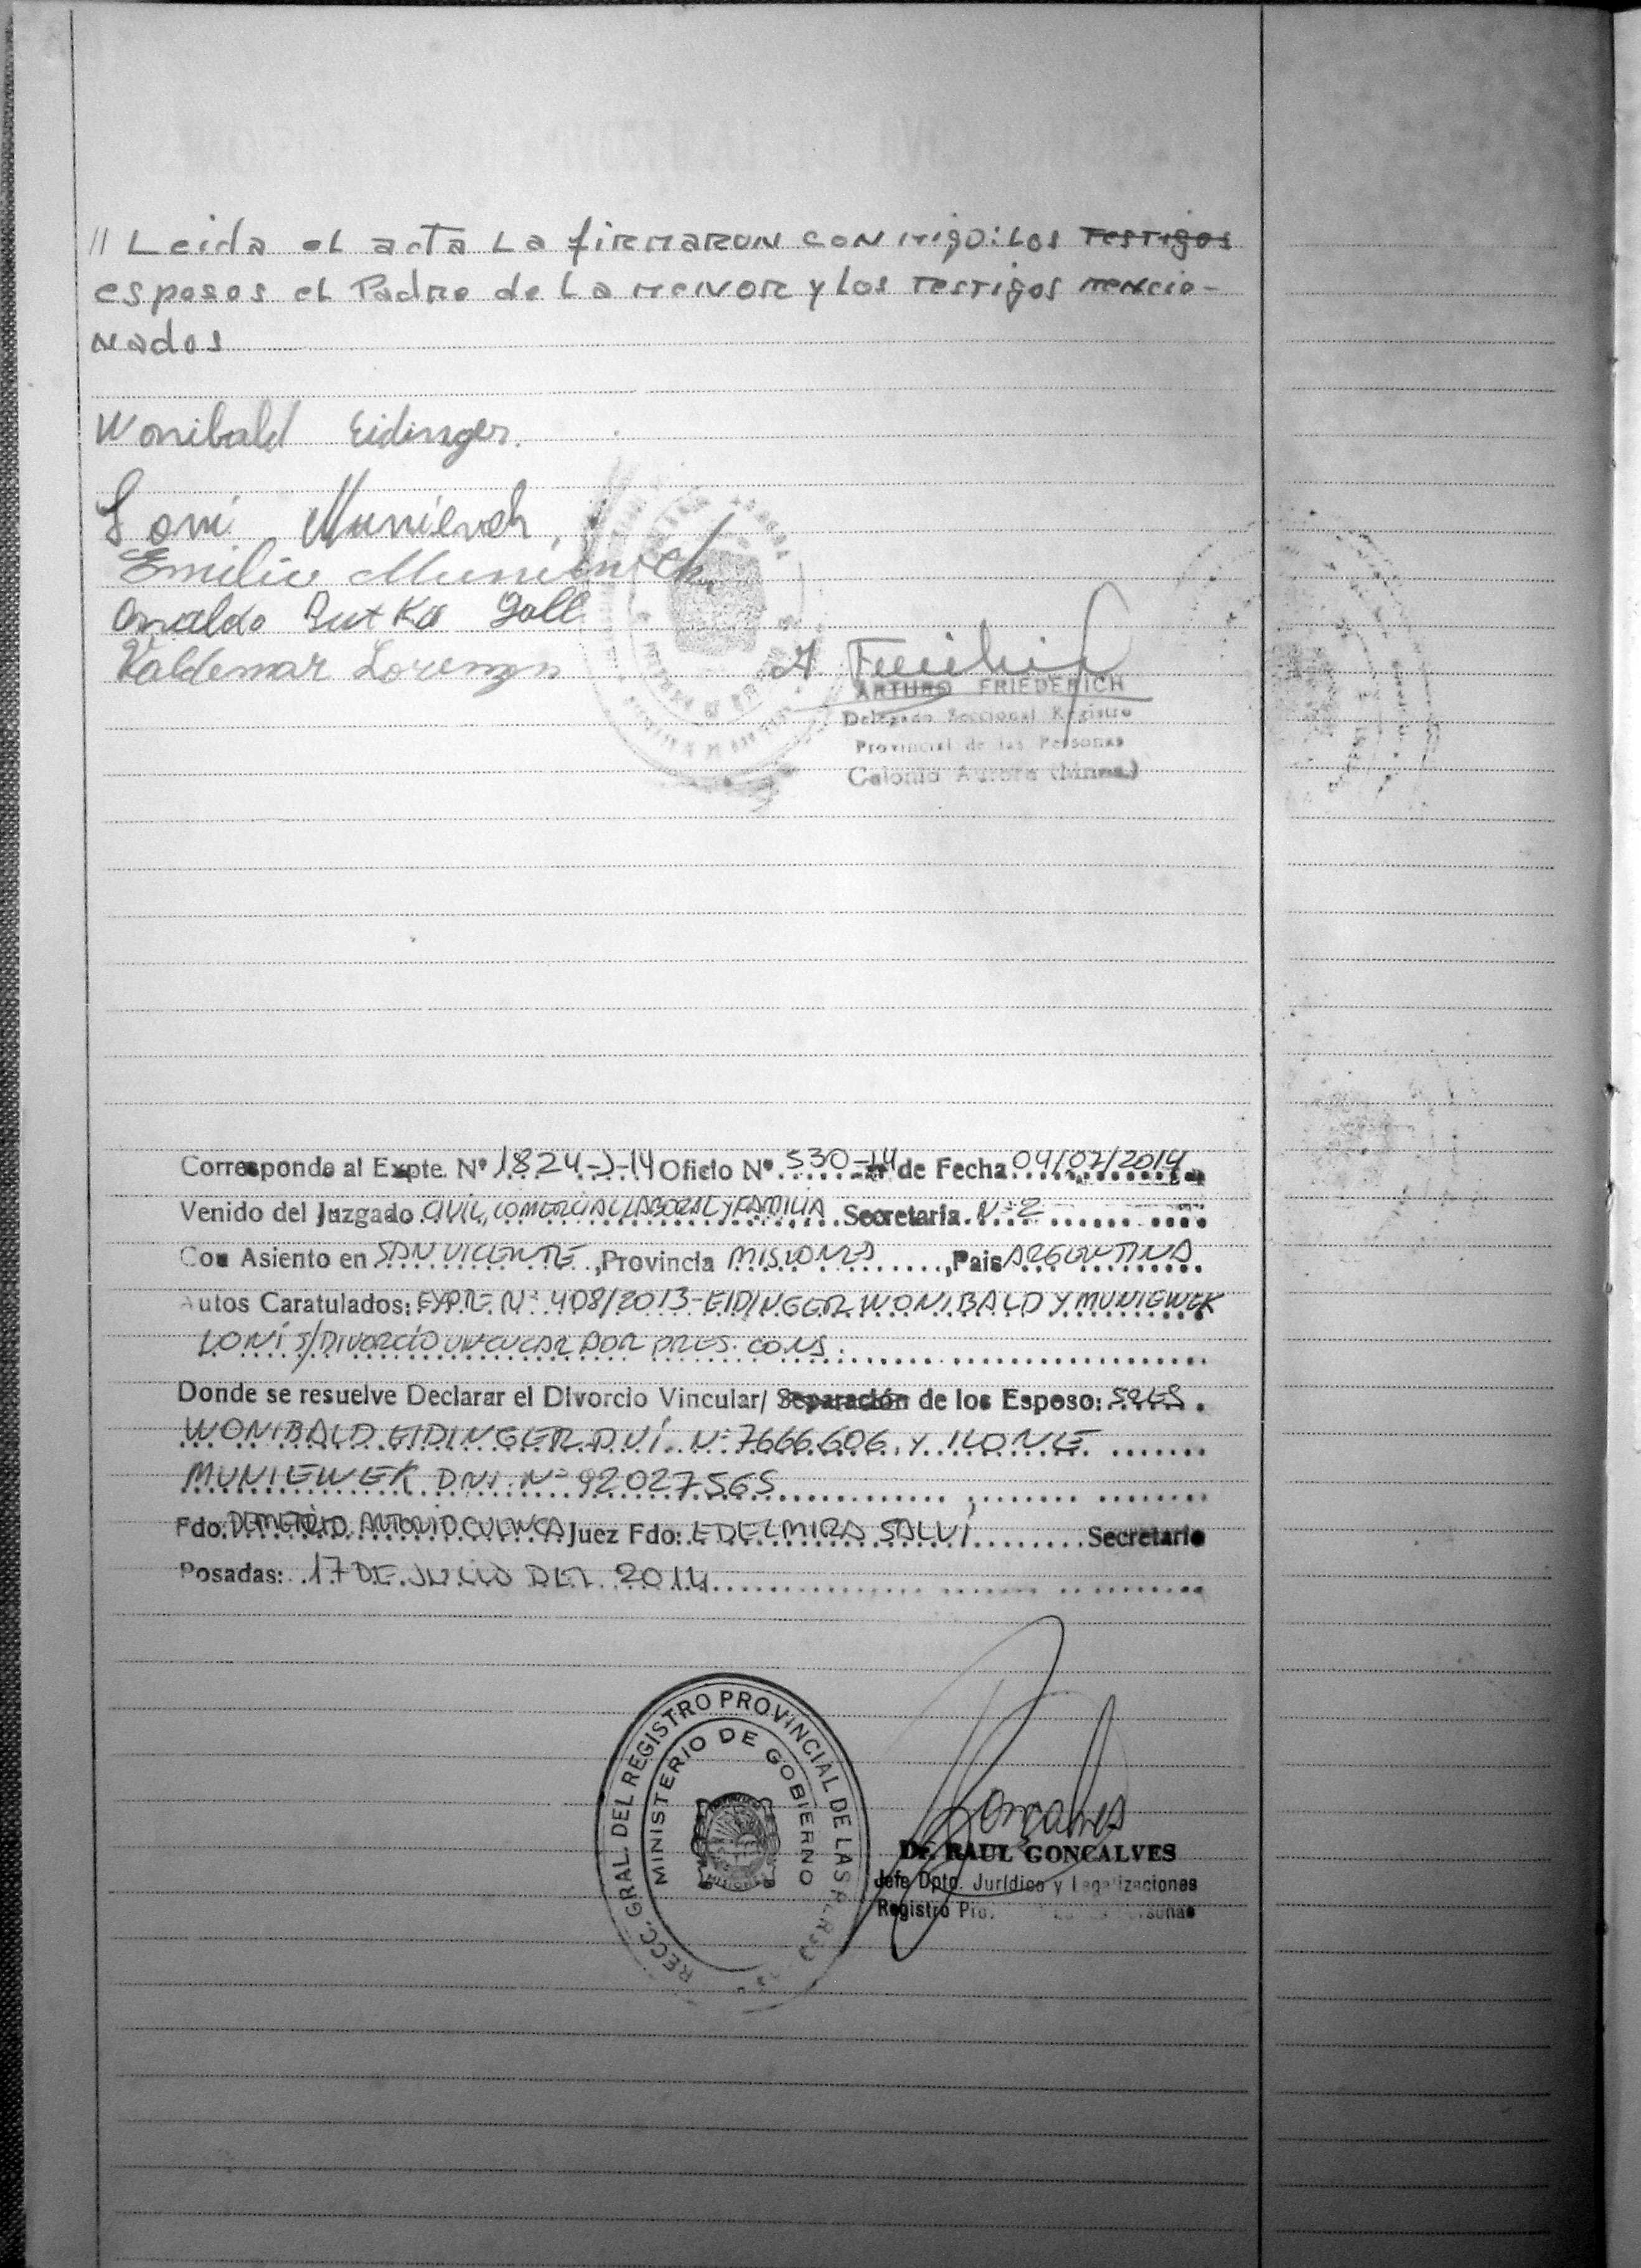 // Leida el acta La firmaron conmigo: Los testigos
esposos el Padre de La menor y Los testigos mencio-
nados
Wonibald Eidinger.
Loni Munievek,
Emilio Munievick
Osvaldo Butka Goll
Valdemar Lorenzo
A. Friederich
ARTURO FRIEDERICH
Delegado Seccional Registro
Provincial de las Personas
Colonia Aurora (Mnes.)
Corresponde al Expte. Nº 1824-J-14 Oficio Nº 530-14 de Fecha 04/07/2014
Venido del Juzgado CIVIL, COMERCIAL LABORAL Y FAMILIA Secretaria Nº 2
Con Asiento en SAN VICENTE, Provincia MISIONES, Pais ARGENTINA
Autos Caratulados: EXPTE. Nº 408/2013-EIDINGER WONIBALD Y MUNIEWEK
LONI S/DIVORCIO VINCULAR POR PRES. CONJ.
Donde se resuelve Declarar el Divorcio Vincular/ Separación de los Esposo: SRES.
WONIBALD EIDINGER D.N.I. Nº 7666.606 Y ILONLE
MUNIEWEK DNI. Nº 92027565
Fdo. DEMETRIO ANTONIO CUENCA Juez Fdo: EDELMIRA SALVI Secretario
Posadas: 17 DE JULIO DEL 2014
RECC. GRAL. DEL REGISTRO PROVINCIAL DE LAS PERSO
MINISTERIO DE GOBIERNO
MISIONES
Goncalves
Dr. RAUL GONCALVES
Jefe Dpto. Jurídico y Legalizaciones
Registro